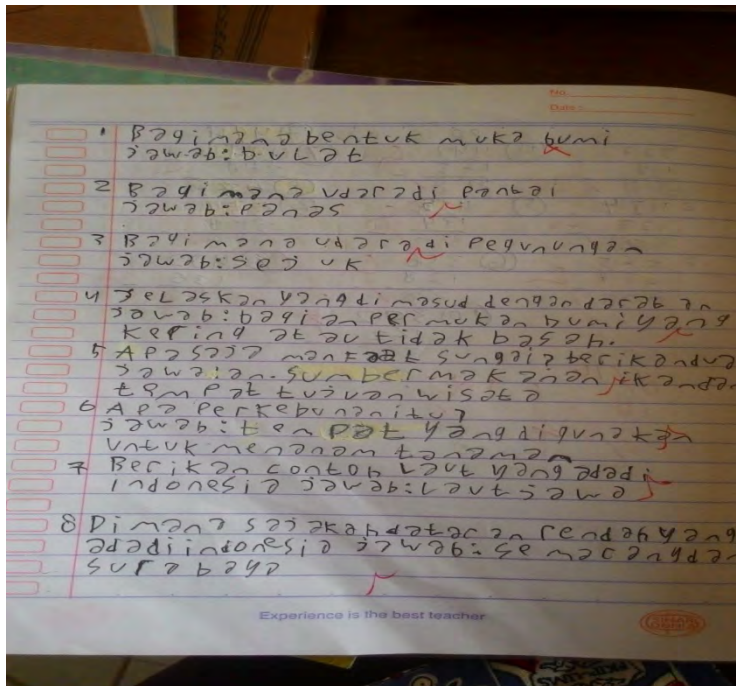 No.
Date :
1 Bagimana bentuk muka bumi
jawab: bulat
2 Bagimana udaradi pantai
jawab: panas
3 Bagimana udaradi pegunungan
jawab: sejuk
4 jelaskan yangdimasud dengan daratan
jawab: bagian permukan bumi yang
kering atau tidak basah.
5 Apa saja manfaat sungai? berikandua
jawaian. sumber makanan ikandan
tempat tujuan wisata
6 Apa perkebunan itu?
jawab: tempat yang digunakan
untuk menanam tanaman
7 Berikan contoh laut yang adadi
indonesia jawab: laut jawa
8 Dimana sajakah dataran rendah yang
adadi indonesia jawab: semarang dan
surabaya
Experience is the best teacher